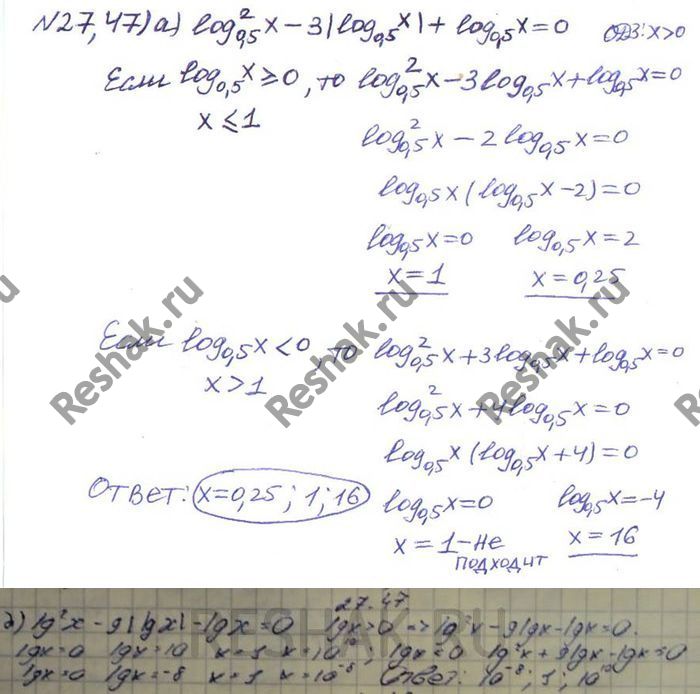 N27,47) а) log²₀,₅x − 3|log₀,₅x| + log₀,₅x = 0 ОДЗ: x>0
Если log₀,₅x ≥ 0, то log²₀,₅x − 3log₀,₅x + log₀,₅x = 0
x ≤ 1
log²₀,₅x − 2log₀,₅x = 0
log₀,₅x (log₀,₅x − 2) = 0
log₀,₅x = 0 log₀,₅x = 2
x = 1 x = 0,25
Если log₀,₅x < 0, то log²₀,₅x + 3log₀,₅x + log₀,₅x = 0
x > 1
log²₀,₅x + 4log₀,₅x = 0
log₀,₅x (log₀,₅x + 4) = 0
Ответ: x = 0,25; 1; 16
log₀,₅x = 0 log₀,₅x = −4
x = 1 − не подходит x = 16
Reshak.ru
Reshak.ru
Reshak.ru
RESHAK.RU
27.47
б) lg²x − 9|lgx| − lgx = 0 lgx > 0 => lg²x − 9lgx − lgx = 0.
lgx = 0 lgx = 10 x = 1 x = 10¹⁰; lgx < 0 lg²x + 9lgx − lgx = 0
lgx = 0 lgx = −8 x = 1 x = 10⁻⁸ Ответ: 10⁻⁸; 1; 10¹⁰